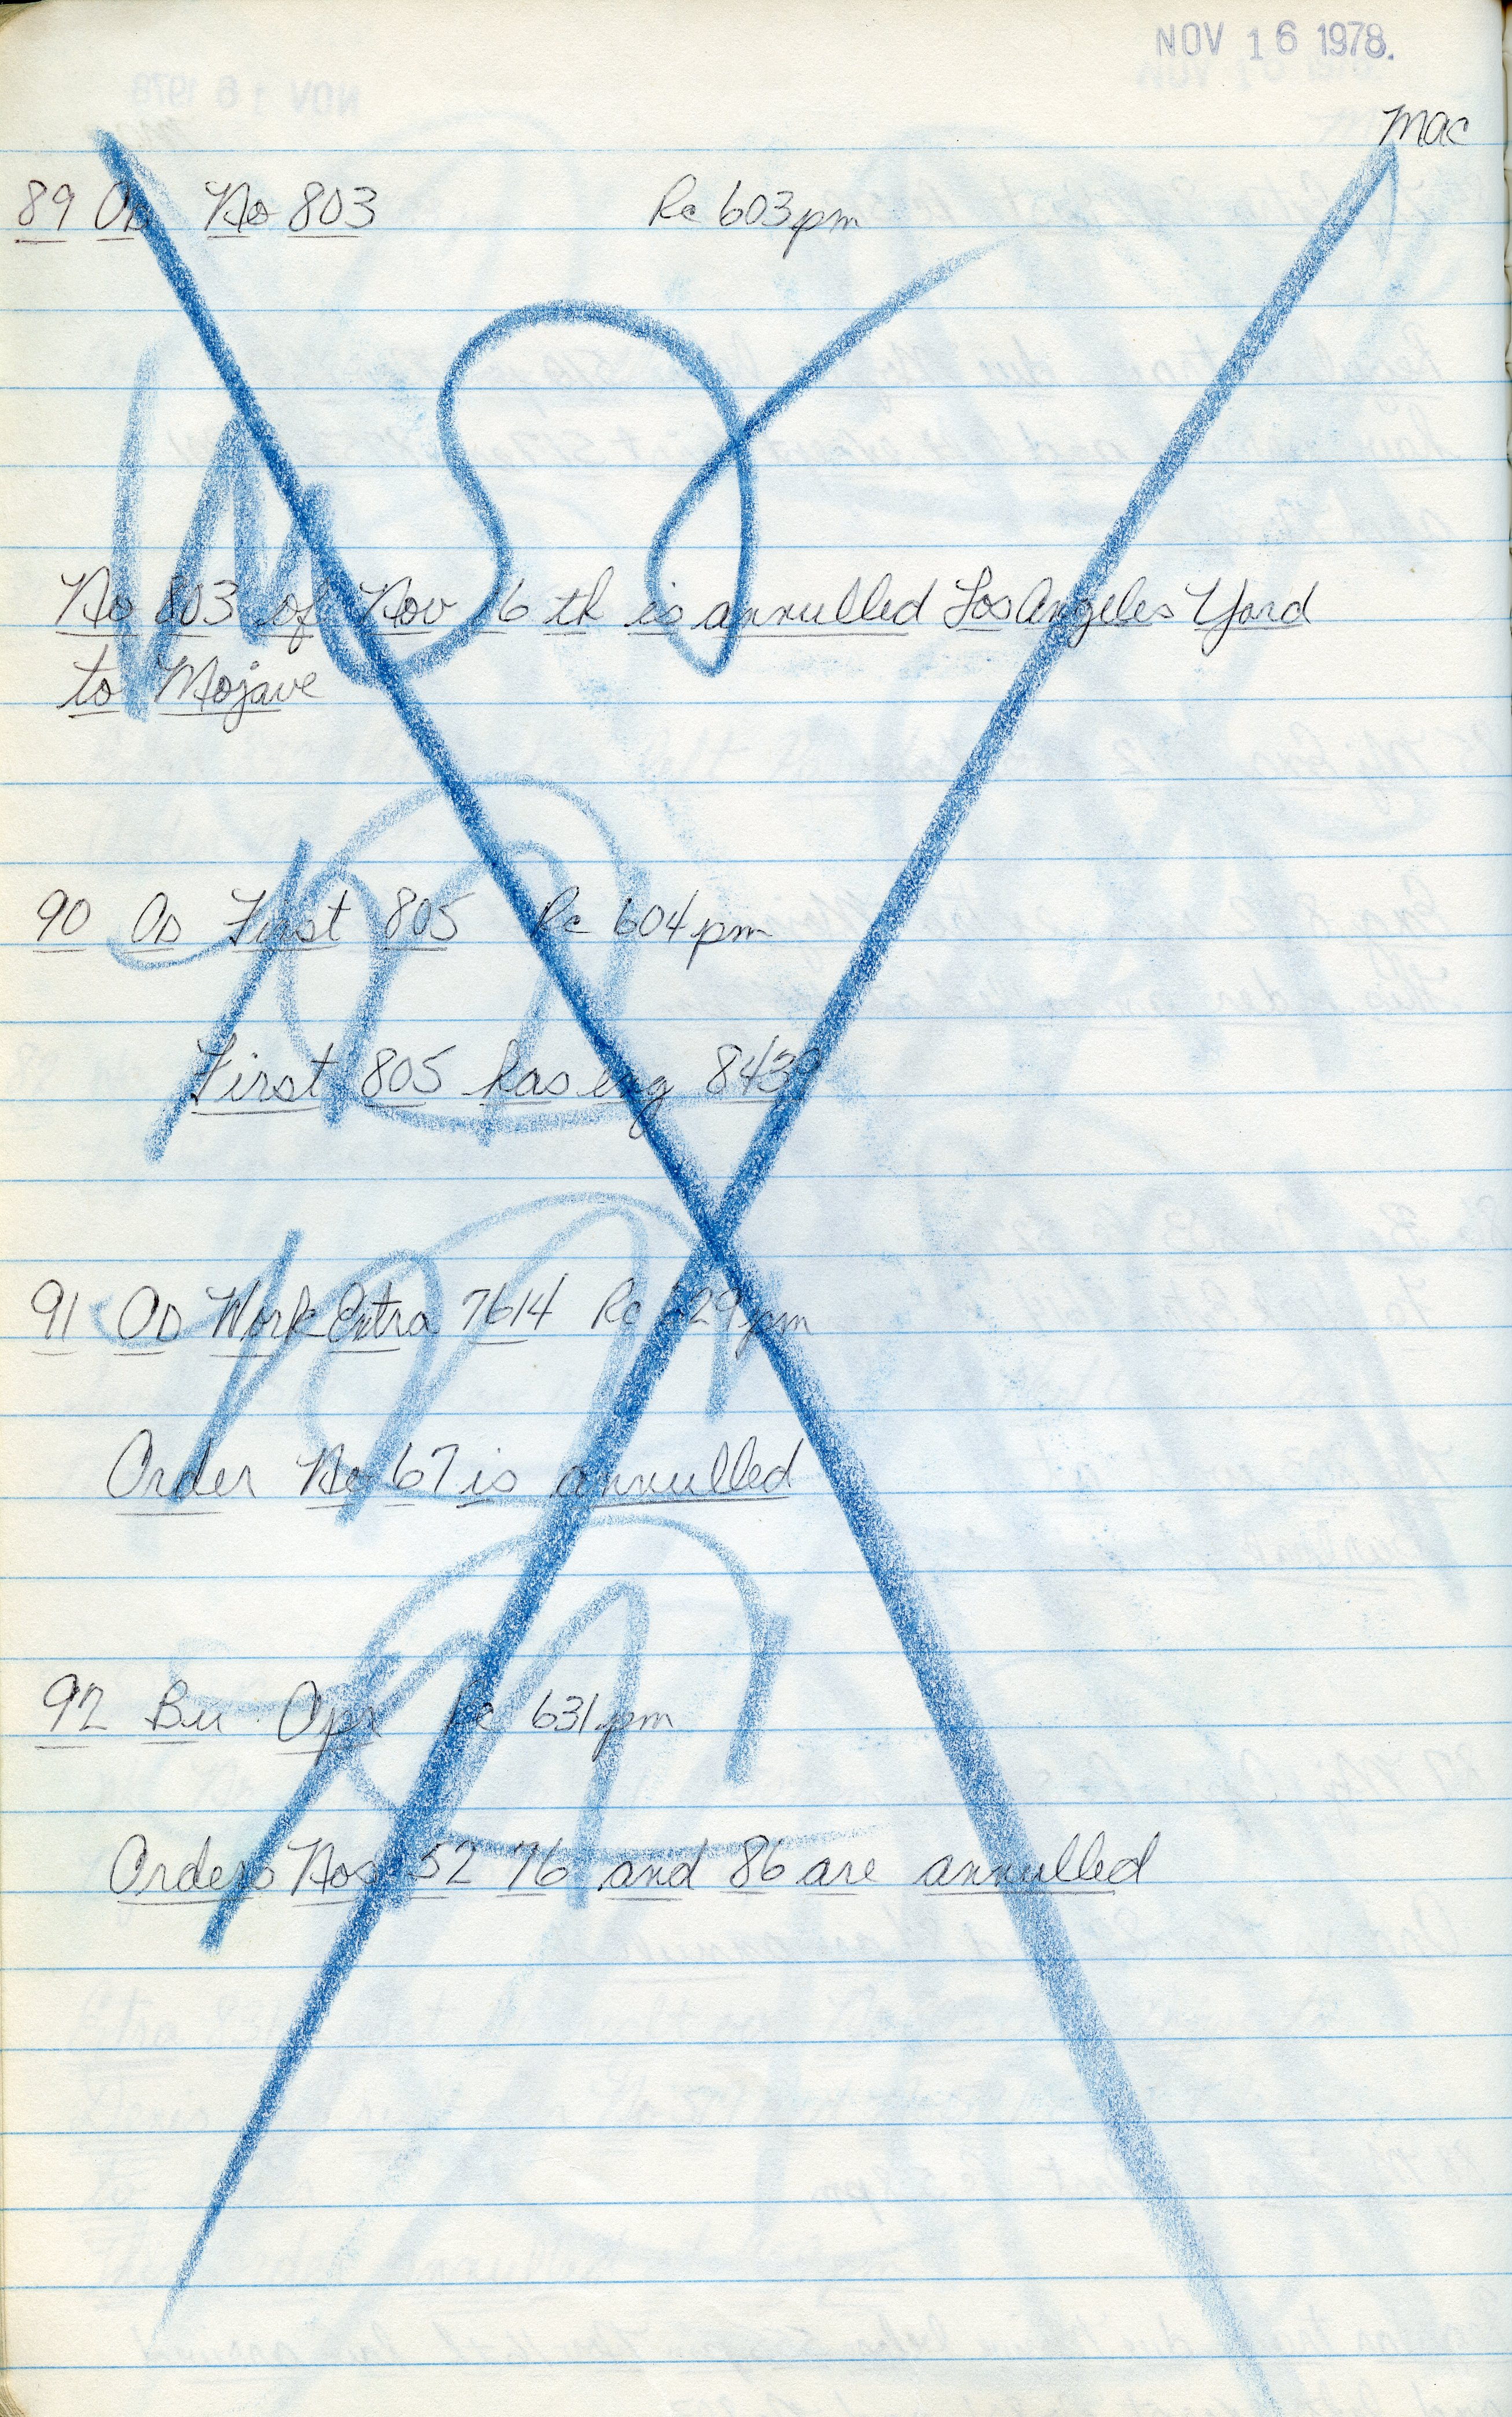 NOV 16 1978.
Mac
89 OD No 803 Rc 603pm
No 803 of Nov 16 th is annulled Los Angeles Yard
to Mojave
90 OD First 805 Rc 604pm
First 805 has eng 8439
91 OD Work Extra 7614 Rc 629pm
Order No 67 is annulled
92 Bu Opr Rc 631pm
Orders Nos 52 76 and 86 are annulled